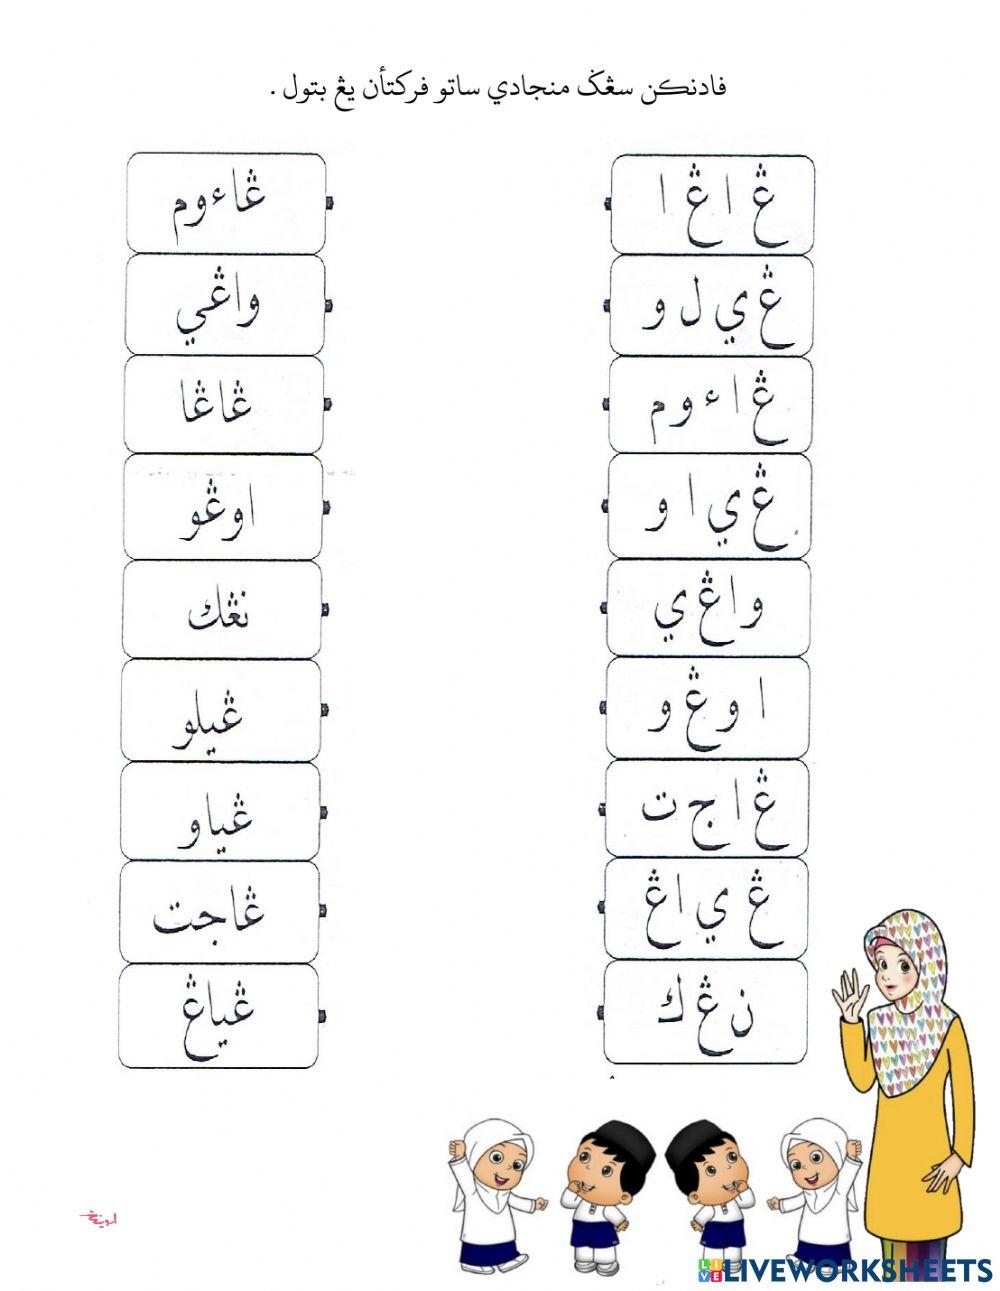 فادنكن سڠݢ منجادي ساتو فركتأن يڠ بتول .
ڠ ا ڠ ا
ڠاءوم
ڠ ي ل و
واڠي
ڠ ا ء و م
ڠاڠا
ڠ ي ا و
اوڠو
و ا ڠ ي
نڠك
ا و ڠ و
ڠيلو
ڠ ا ج ت
ڠياو
ڠ ي ا ڠ
ڠاجت
ن ڠ ك
ڠياڠ
LIVE LIVEWORKSHEETS